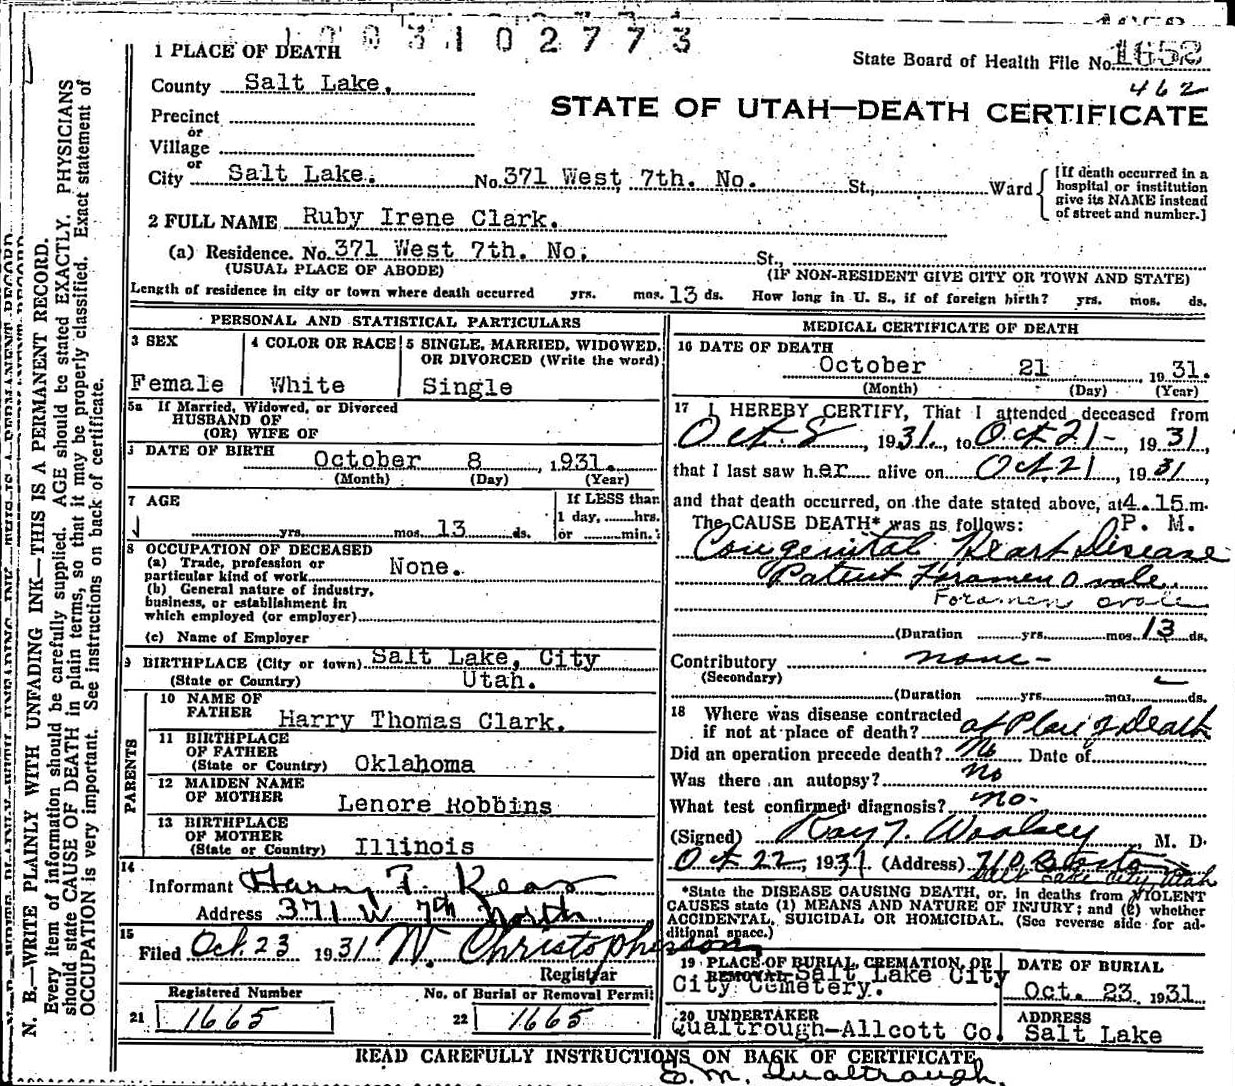 1003102773
1 PLACE OF DEATH
State Board of Health File No. 1652
462
County Salt Lake.
STATE OF UTAH—DEATH CERTIFICATE
Precinct
or
Village
or
City Salt Lake. No. 371 West 7th. No. St., Ward
[If death occurred in a
hospital or institution
give its NAME instead
of street and number.]
2 FULL NAME Ruby Irene Clark.
(a) Residence. No. 371 West 7th. No. St.,
(USUAL PLACE OF ABODE) (IF NON-RESIDENT GIVE CITY OR TOWN AND STATE)
Length of residence in city or town where death occurred yrs. mos. 13 ds. How long in U. S., if of foreign birth? yrs. mos. ds.
PERSONAL AND STATISTICAL PARTICULARS
3 SEX
Female
4 COLOR OR RACE
White
5 SINGLE, MARRIED, WIDOWED,
OR DIVORCED (Write the word)
Single
5a If Married, Widowed, or Divorced
HUSBAND OF
(OR) WIFE OF
DATE OF BIRTH October 8, 1931.
(Month) (Day) (Year)
7 AGE
yrs. mos. 13 ds.
If LESS than
1 day, hrs.
or min.
8 OCCUPATION OF DECEASED
(a) Trade, profession or
particular kind of work None.
(b) General nature of industry,
business, or establishment in
which employed (or employer)
(c) Name of Employer
9 BIRTHPLACE (City or town) Salt Lake, City
(State or Country) Utah.
PARENTS
10 NAME OF
FATHER Harry Thomas Clark.
11 BIRTHPLACE
OF FATHER
(State or Country) Oklahoma
12 MAIDEN NAME
OF MOTHER Lenore Robbins
13 BIRTHPLACE
OF MOTHER
(State or Country) Illinois
14
Informant Harry T.
Address 371 W 7th North
15
Filed Oct. 23 1931 W. Christopherson
Registrar
Registered Number
21 1665
No. of Burial or Removal Permit
22 1665
MEDICAL CERTIFICATE OF DEATH
16 DATE OF DEATH
October 21, 1931.
(Month) (Day) (Year)
17 I HEREBY CERTIFY, That I attended deceased from
Oct. 8, 1931, to Oct 21-, 1931,
that I last saw her alive on Oct. 21, 1931,
and that death occurred, on the date stated above, at 4.15 m.
The CAUSE DEATH* was as follows: P. M.
Congenital Heart Disease
Patent Foramen Ovale
Foramen ovale
(Duration yrs. mos. 13 ds.
Contributory none-
(Secondary)
(Duration yrs. mos. ds.
18 Where was disease contracted
if not at place of death? at Place of Death
Did an operation precede death? No Date of
Was there an autopsy? no
What test confirmed diagnosis? no.
(Signed) Ray T. Woolsey, M. D.
Oct 22, 1931. (Address) Boston
Salt Lake City, Utah
*State the DISEASE CAUSING DEATH, or, in deaths from VIOLENT
CAUSES state (1) MEANS AND NATURE OF INJURY; and (2) whether
ACCIDENTAL, SUICIDAL OR HOMICIDAL. (See reverse side for ad-
ditional space.)
19 PLACE OF BURIAL, CREMATION, OR
REMOVAL Salt Lake City
City Cemetery.
DATE OF BURIAL
Oct. 23, 1931
20 UNDERTAKER
Qualtrough-Allcott Co.
ADDRESS
Salt Lake
READ CAREFULLY INSTRUCTIONS ON BACK OF CERTIFICATE
E. M. Qualtrough.
N. B.—WRITE PLAINLY WITH UNFADING INK—THIS IS A PERMANENT RECORD.
Every item of information should be carefully supplied. AGE should be stated EXACTLY. PHYSICIANS
should state CAUSE OF DEATH in plain terms, so that it may be properly classified. Exact statement of
OCCUPATION is very important. See instructions on back of certificate.